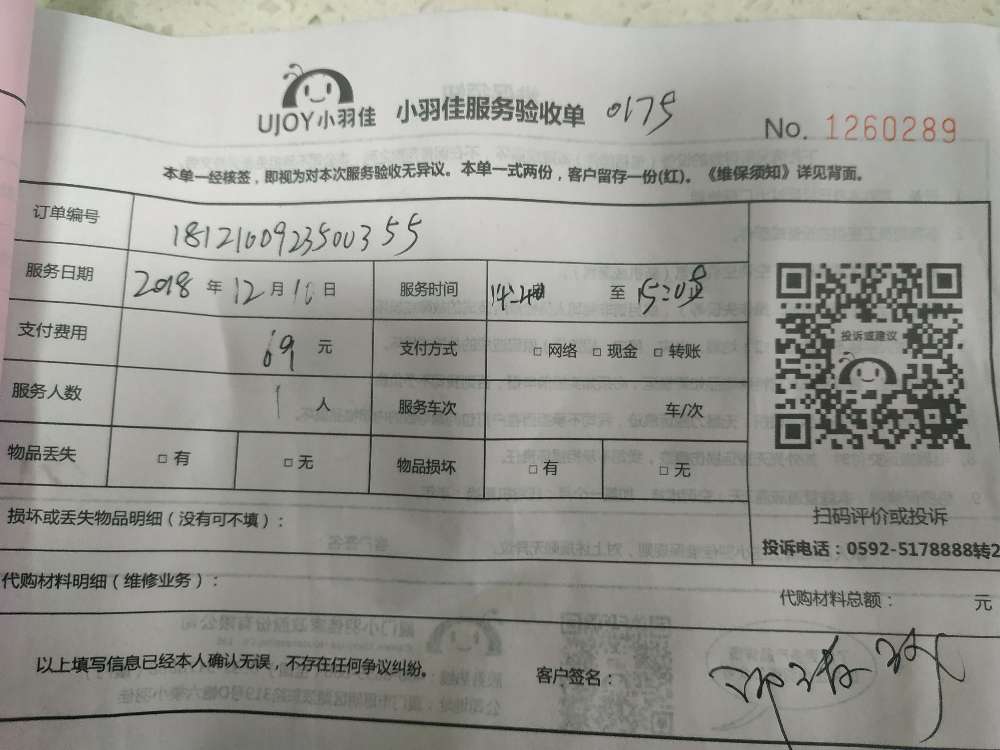 UJOY小羽佳 小羽佳服务验收单 0175
No. 1260289
本单一经核签，即视为对本次服务验收无异议。本单一式两份，客户留存一份(红)。《维保须知》详见背面。
订单编号 181210092350035 5
服务日期 2018 年 12 月 10 日 服务时间 至
支付费用 69 元 支付方式 □ 网络 □ 现金 □ 转账
服务人数 1 人 服务车次 车/次
物品丢失 □ 有 □ 无 物品损坏 □ 有 □ 无
投诉或建议
扫码评价或投诉
投诉电话：0592-5178888转2
损坏或丢失物品明细（没有可不填）：
代购材料明细（维修业务）：
代购材料总额： 元
以上填写信息已经本人确认无误，不存在任何争议纠纷。 客户签名：